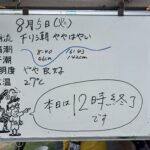 8月5日(火)
流 下り潮 やや はやい
満潮 8:40 16:43
干潮
明度 やや良好
温 27℃
本日は12時終了
です